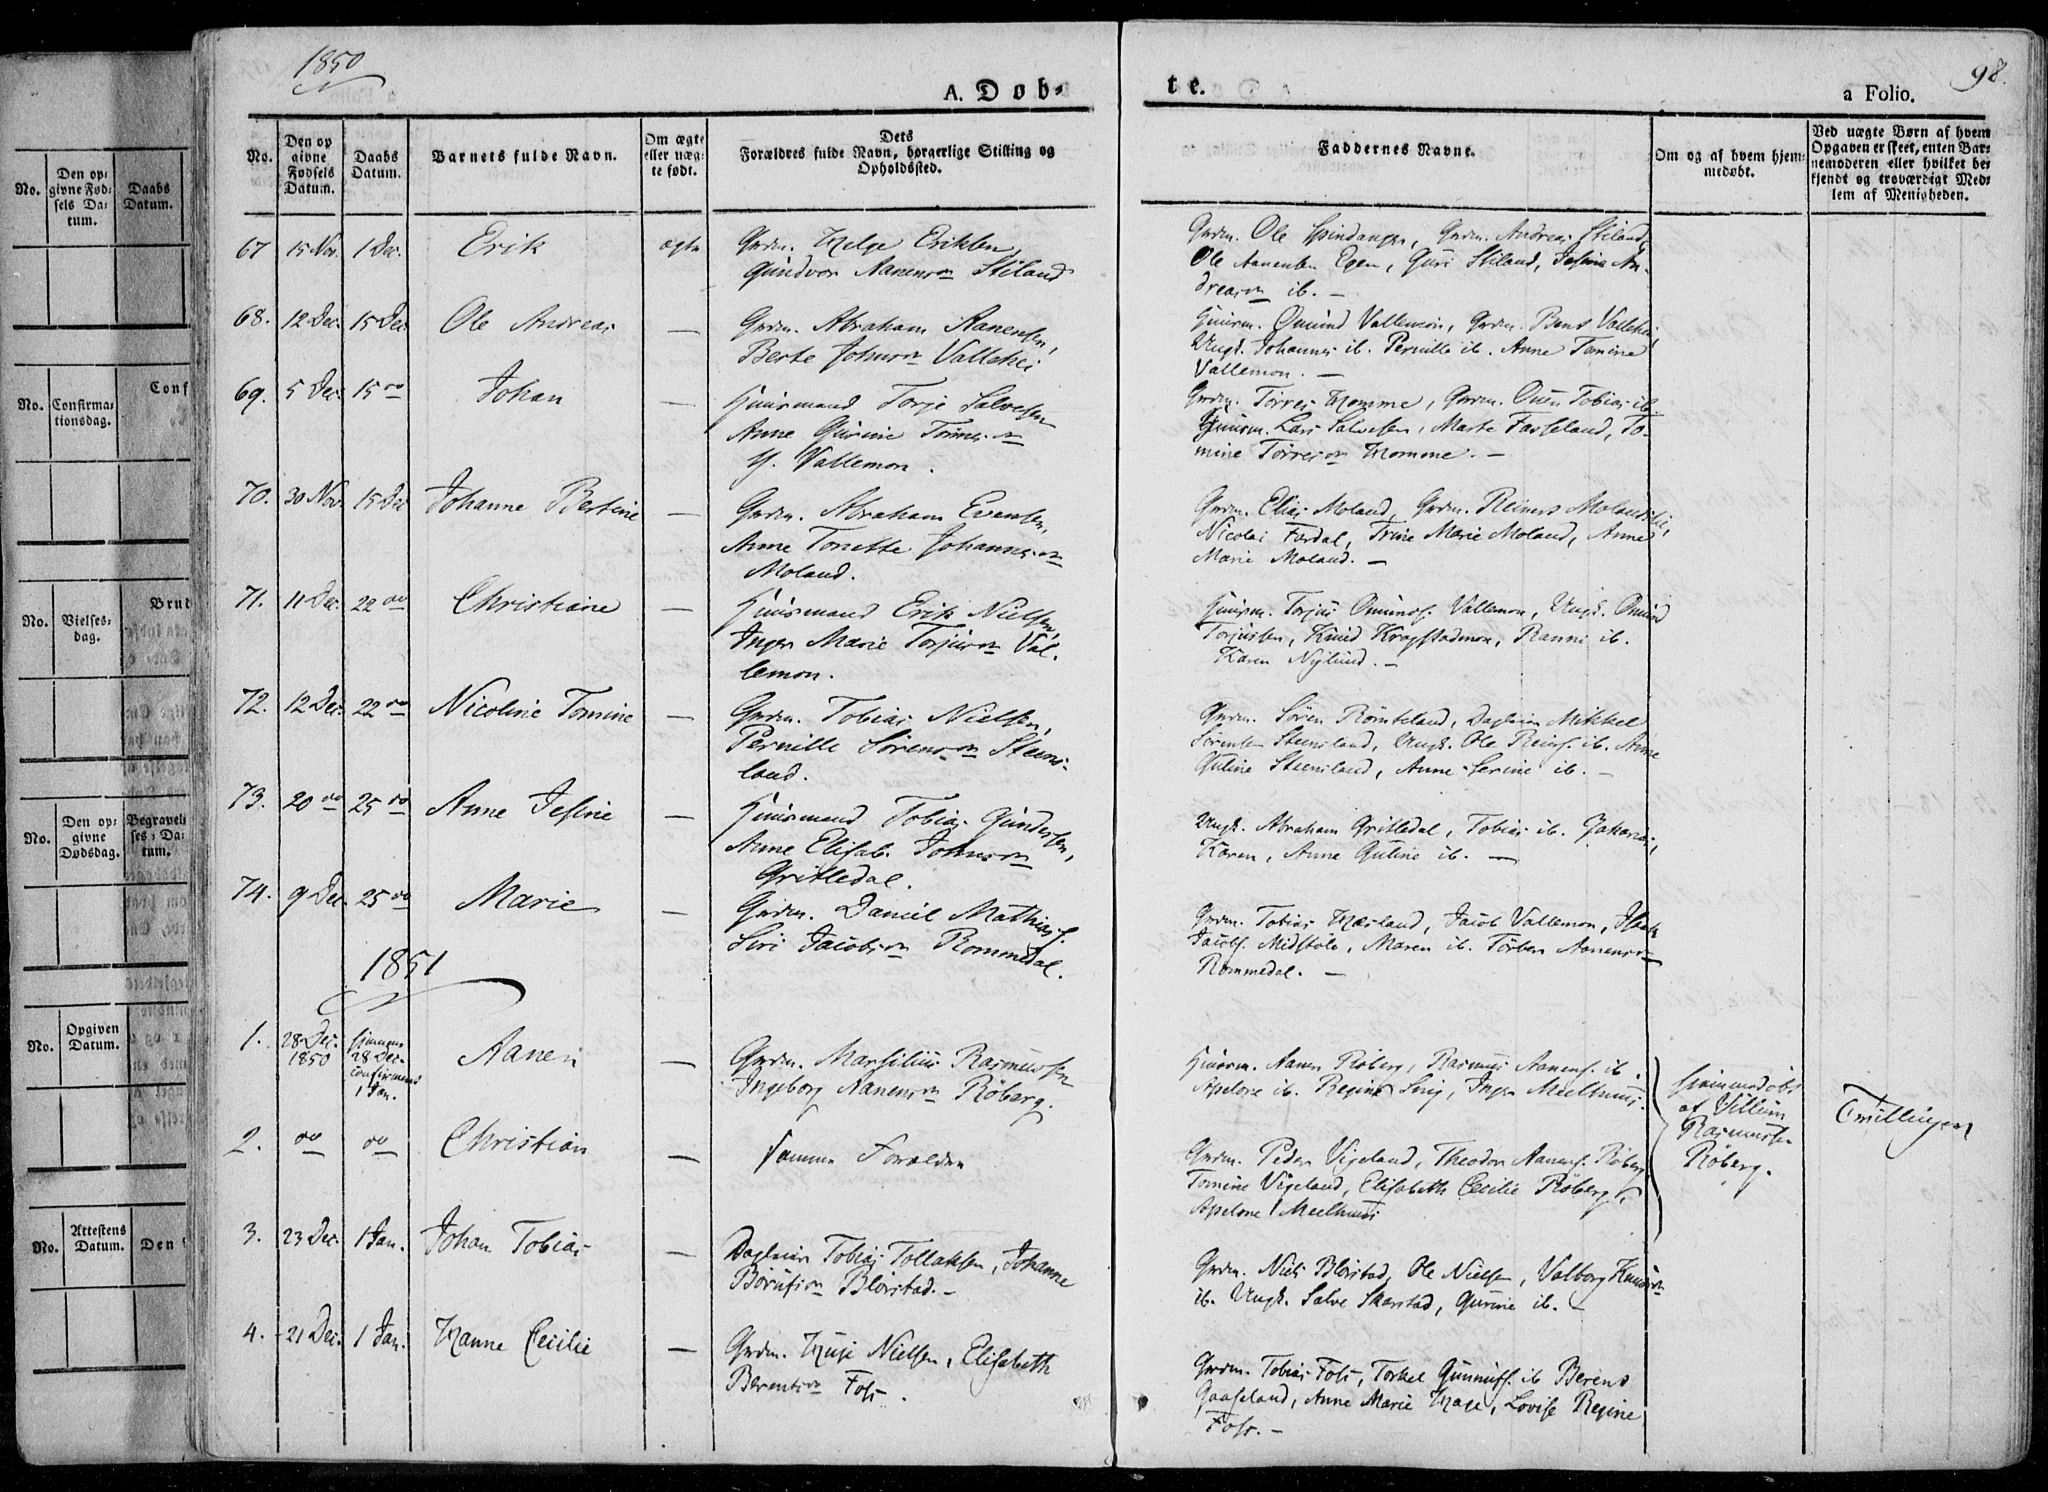 1850
98.
A. Døb-
te.
a Folio.
No.
Den op givne Fødsels Datum.
Daabs Datum.
Barnets fulde Navn.
Om ægte eller uægte født.
Dets Forældres fulde Navn, borgerlige Stilling og Opholdssted.
Faddernes Navne.
Om og af hvem hjemmedøbt.
Ved uægte Børn af hvem Opgaven er skeet, enten Barnemoderen eller hvilket bekjendt og troværdigt Medlem af Menigheden.
67 15 Nov. 1 Dec. Erik ægte
Grdm. Helge Eriksen,
Gundvor Aanensn Stiland
Grdm. Ole Spindanger, Grdm. Andreas Stiland,
Ole Aanensen Egen, Guri Stiland, Jesine An-
dreasn ib. —
68. 12 Dec. 15 Dec Ole Andreas —
Grdm. Abraham Aanensen,
Berte Johnsn Vallehei
Huusm. Omund Vallemon, Grdm. Bent Vallehei,
Ungk. Johannes ib. Pernille ib. Anne Tomine
Vallemon. —
69. 5 Dec. 15 do Johan —
Huusmand Torje Salvesen
Anne Gurine Tørresn
Vallemon.
Grdm. Tørres Homme, Grdm. Ouen Tobias ib
Huusm. Lars Salvesen, Marte Fasseland, To-
mine Tørresn Homme. —
70. 30 Nov. 15 Dec Johanne Bertine —
Grdm. Abraham Evensen,
Anne Tonette Johannesn
Moland.
Grdm. Elias Moland, Grdm. Reinert Molandslii,
Nicolai Fardal, Trine Marie Moland, Anne
Marie Moland. —
71. 11 Dec. 22 do Christiane —
Huusmand Erik Nielsen,
Inger Marie Torjusn Val-
lemon.
Huusm. Torjus Omunds. Vallemon, Ungk. Omund
Torjussen, Knud Kragstadmon, Ranni ib.
Karen Nylund. —
72. 12 Dec. 22 do Nicoline Tomine —
Grdm. Tobias Nielsen,
Pernille Sørensn Steens-
land.
Grdm. Søren Rømteland, Dagleier Mikkel
Sørensen Steensland, Ungk. Ole Reiers. ib. Anne
Guline Steensland, Anne Serine ib. —
73. 20 do 25 do Anne Jesine —
Huusmand Tobias Gundersen,
Anne Elisab. Johnsn
Gritledal.
Ungk. Abraham Gritledal, Tobias ib. Johanne,
Karen, Anne Guline ib. —
74. 9 Dec. 25 do Marie —
Grdm. Daniel Mathias.
Siri Jacobsn Rommedal.
Grdm. Tobias Haesland, Jacob Vallemon, Isak
Jacobs. Midstøle, Maren ib. Torber Aanensn
Rommedal. —
1851
1. 28 Dec. 1850
Hjemme 28 Dec. confirmeret 1 Jan.
Aanen —
Grdm. Marsilius Rasmussen
Ingeborg Aanensn Røberg.
Huusm. Aanen Røberg, Rasmus Aanens. ib.
Apelone ib. Regine ib, Inger Meelhuus.
Hjemmedøbt
af Villum
Rasmussen
Røberg.
Tvillinger
2. do do Christian —
Samme Forældre
Grdm. Peder Vigeland, Theodor Aanens. Røberg
Tomine Vigeland, Elisabeth Cecilie Røberg,
Apelone Meelhuus
3. 23 Dec. 1 Jan. Johan Tobias —
Dagleier Tobias Tollaksen, Johanne
Børufsn Blørstad. —
Grdm. Niels Blørstad, Ole Nielsen, Valborg Knudsn
ib. Ungk. Salve Skarstad, Gurine ib. —
4. 21 Dec. 1 Jan. Hanne Cecilie —
Grdm. Huje Nielsen, Elisabeth
Berentsn Foss.
Grdm. Tobias Foss, Torkel Gunnufs. ib Berent
Gaaseland, Anne Marie Hage, Lovise Regine
Foss. —
No.
Den opgivne Fødsels Datum.
Daabs Datum.
Conf
No.
Confirmationsdag.
Brud
No.
Vielsesdag.
No.
Den opgivne Dødsdag.
Begravelses-Datum.
No.
Opgiven Datum.
No.
Attestens Datum.
Den